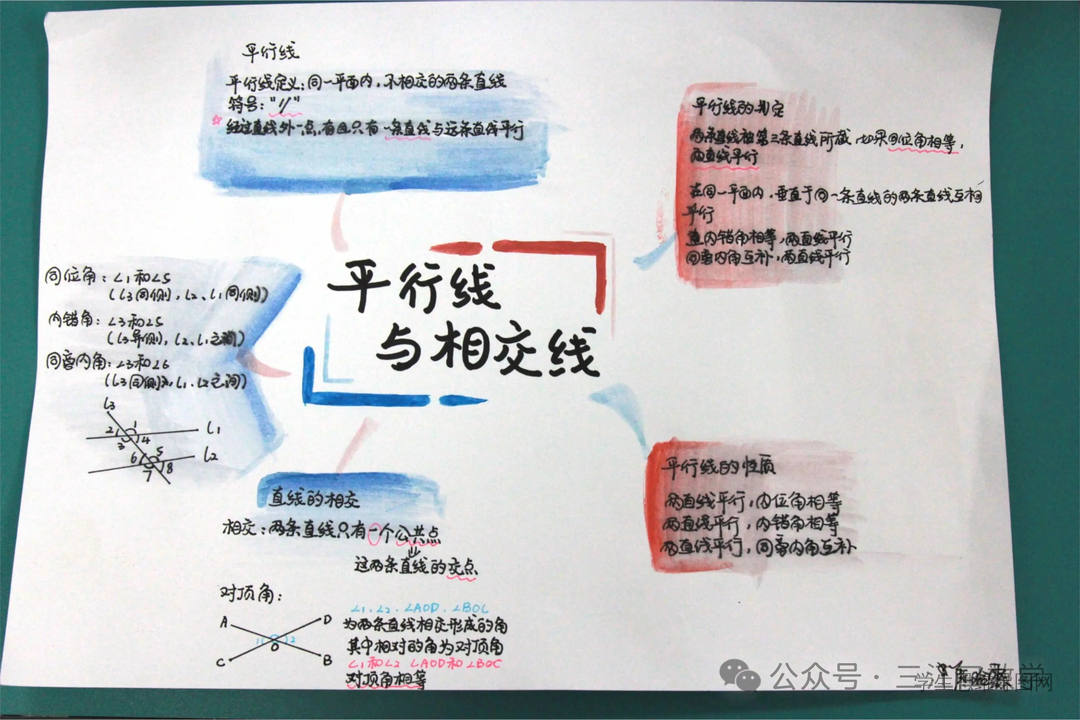 平行线
平行线定义：同一平面内，不相交的两条直线
符号："//"
☆ 经过直线外一点，有且只有一条直线与这条直线平行
平行线的判定
两条直线被第三条直线所截，如果同位角相等，
两直线平行
在同一平面内，垂直于同一条直线的两条直线互相
平行
内错角相等，两直线平行
同旁内角互补，两直线平行
平行线
与相交线
同位角：∠1和∠5
(l3同侧，l2、l1同侧)
内错角：∠3和∠5
(l3异侧，l2、l1之间)
同旁内角：∠3和∠6
(l3同侧，l1、l2之间)
l3
2 1
3 4
l1
6 5
7 8
l2
直线的相交
相交：两条直线只有一个公共点
⇓
这两条直线的交点
对顶角：
A D
1 2
O
C B
∠1、∠2、∠AOD、∠BOC
为两条直线相交形成的角
其中相对的角为对顶角
∠1和∠2 ∠AOD和∠BOC
对顶角相等
平行线的性质
两直线平行，内位角相等
两直线平行，内错角相等
两直线平行，同旁内角互补
公众号 · 三